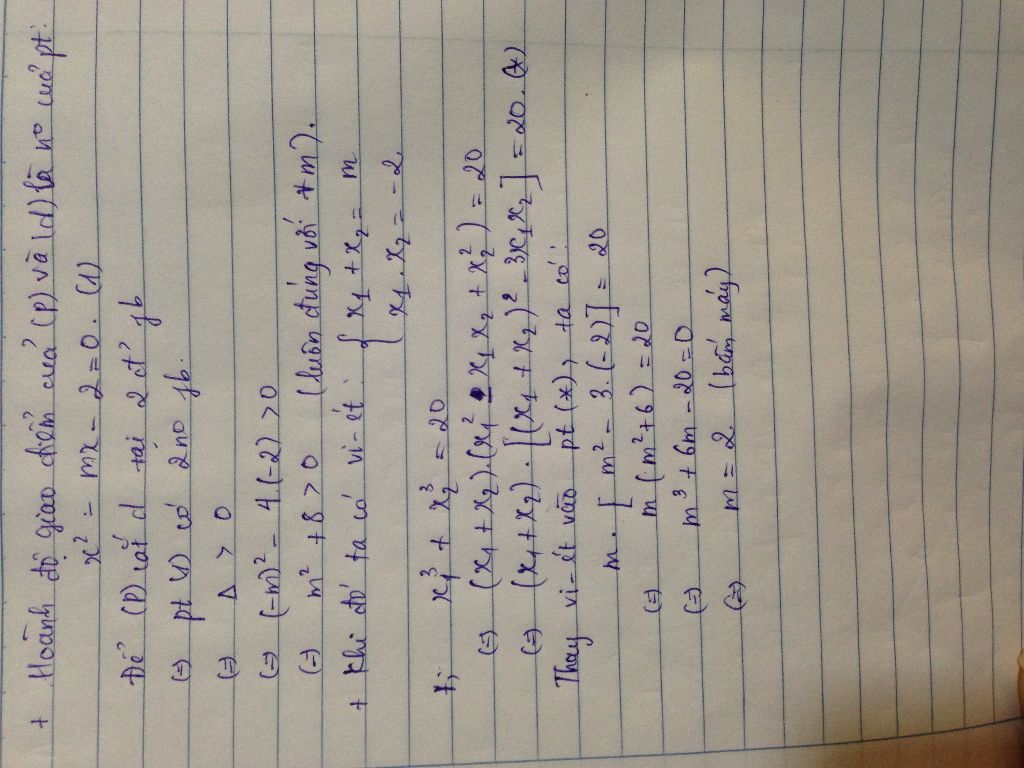 + Hoành độ giao điểm của (P) và (d) là no của pt.
x² = mx - 2 = 0. (1)
Để (P) cắt d tại 2 đ' pb
(=) pt (1) có 2 no pb.
(=) Δ > 0
(=) (-m)² - 4.(-2) > 0
(=) m² + 8 > 0 (luôn đúng với ∀m).
+ Khi đó ta có vi-ét: { x₁ + x₂ = m
x₁ . x₂ = -2.
x₁³ + x₂³ = 20
(=) (x₁ + x₂).(x₁² - x₁x₂ + x₂²) = 20
(=) (x₁ + x₂). [(x₁ + x₂)² - 3x₁x₂] = 20. (*)
Thay vi-ét vào pt (*), ta có:
m. [m² - 3.(-2)] = 20
(=) m (m² + 6) = 20
(=) m³ + 6m - 20 = 0
(=) m = 2. (bấm máy)